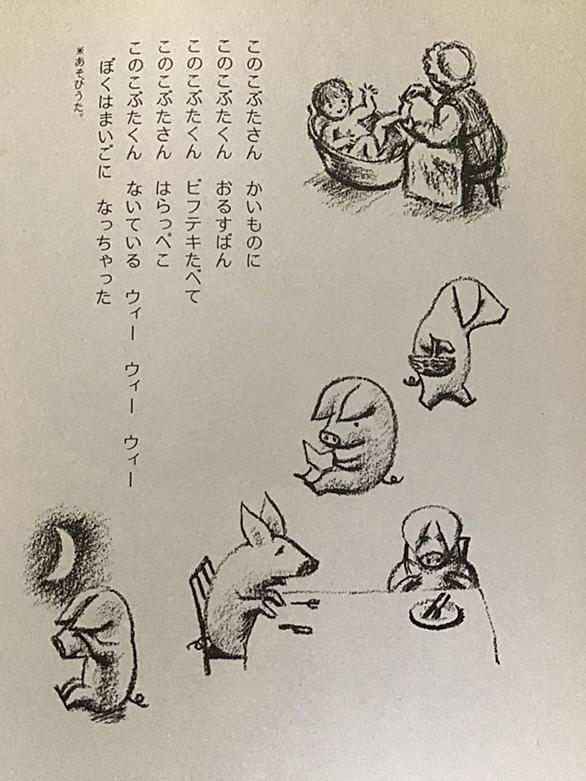 このこぶたさん　かいものに
このこぶたくん　おるすばん
このこぶたくん　ビフテキたべて
このこぶたさん　はらっぺこ
このこぶたくん　ないている　ウィー　ウィー　ウィー
ぼくはまいごに　なっちゃった
*あそびうた。